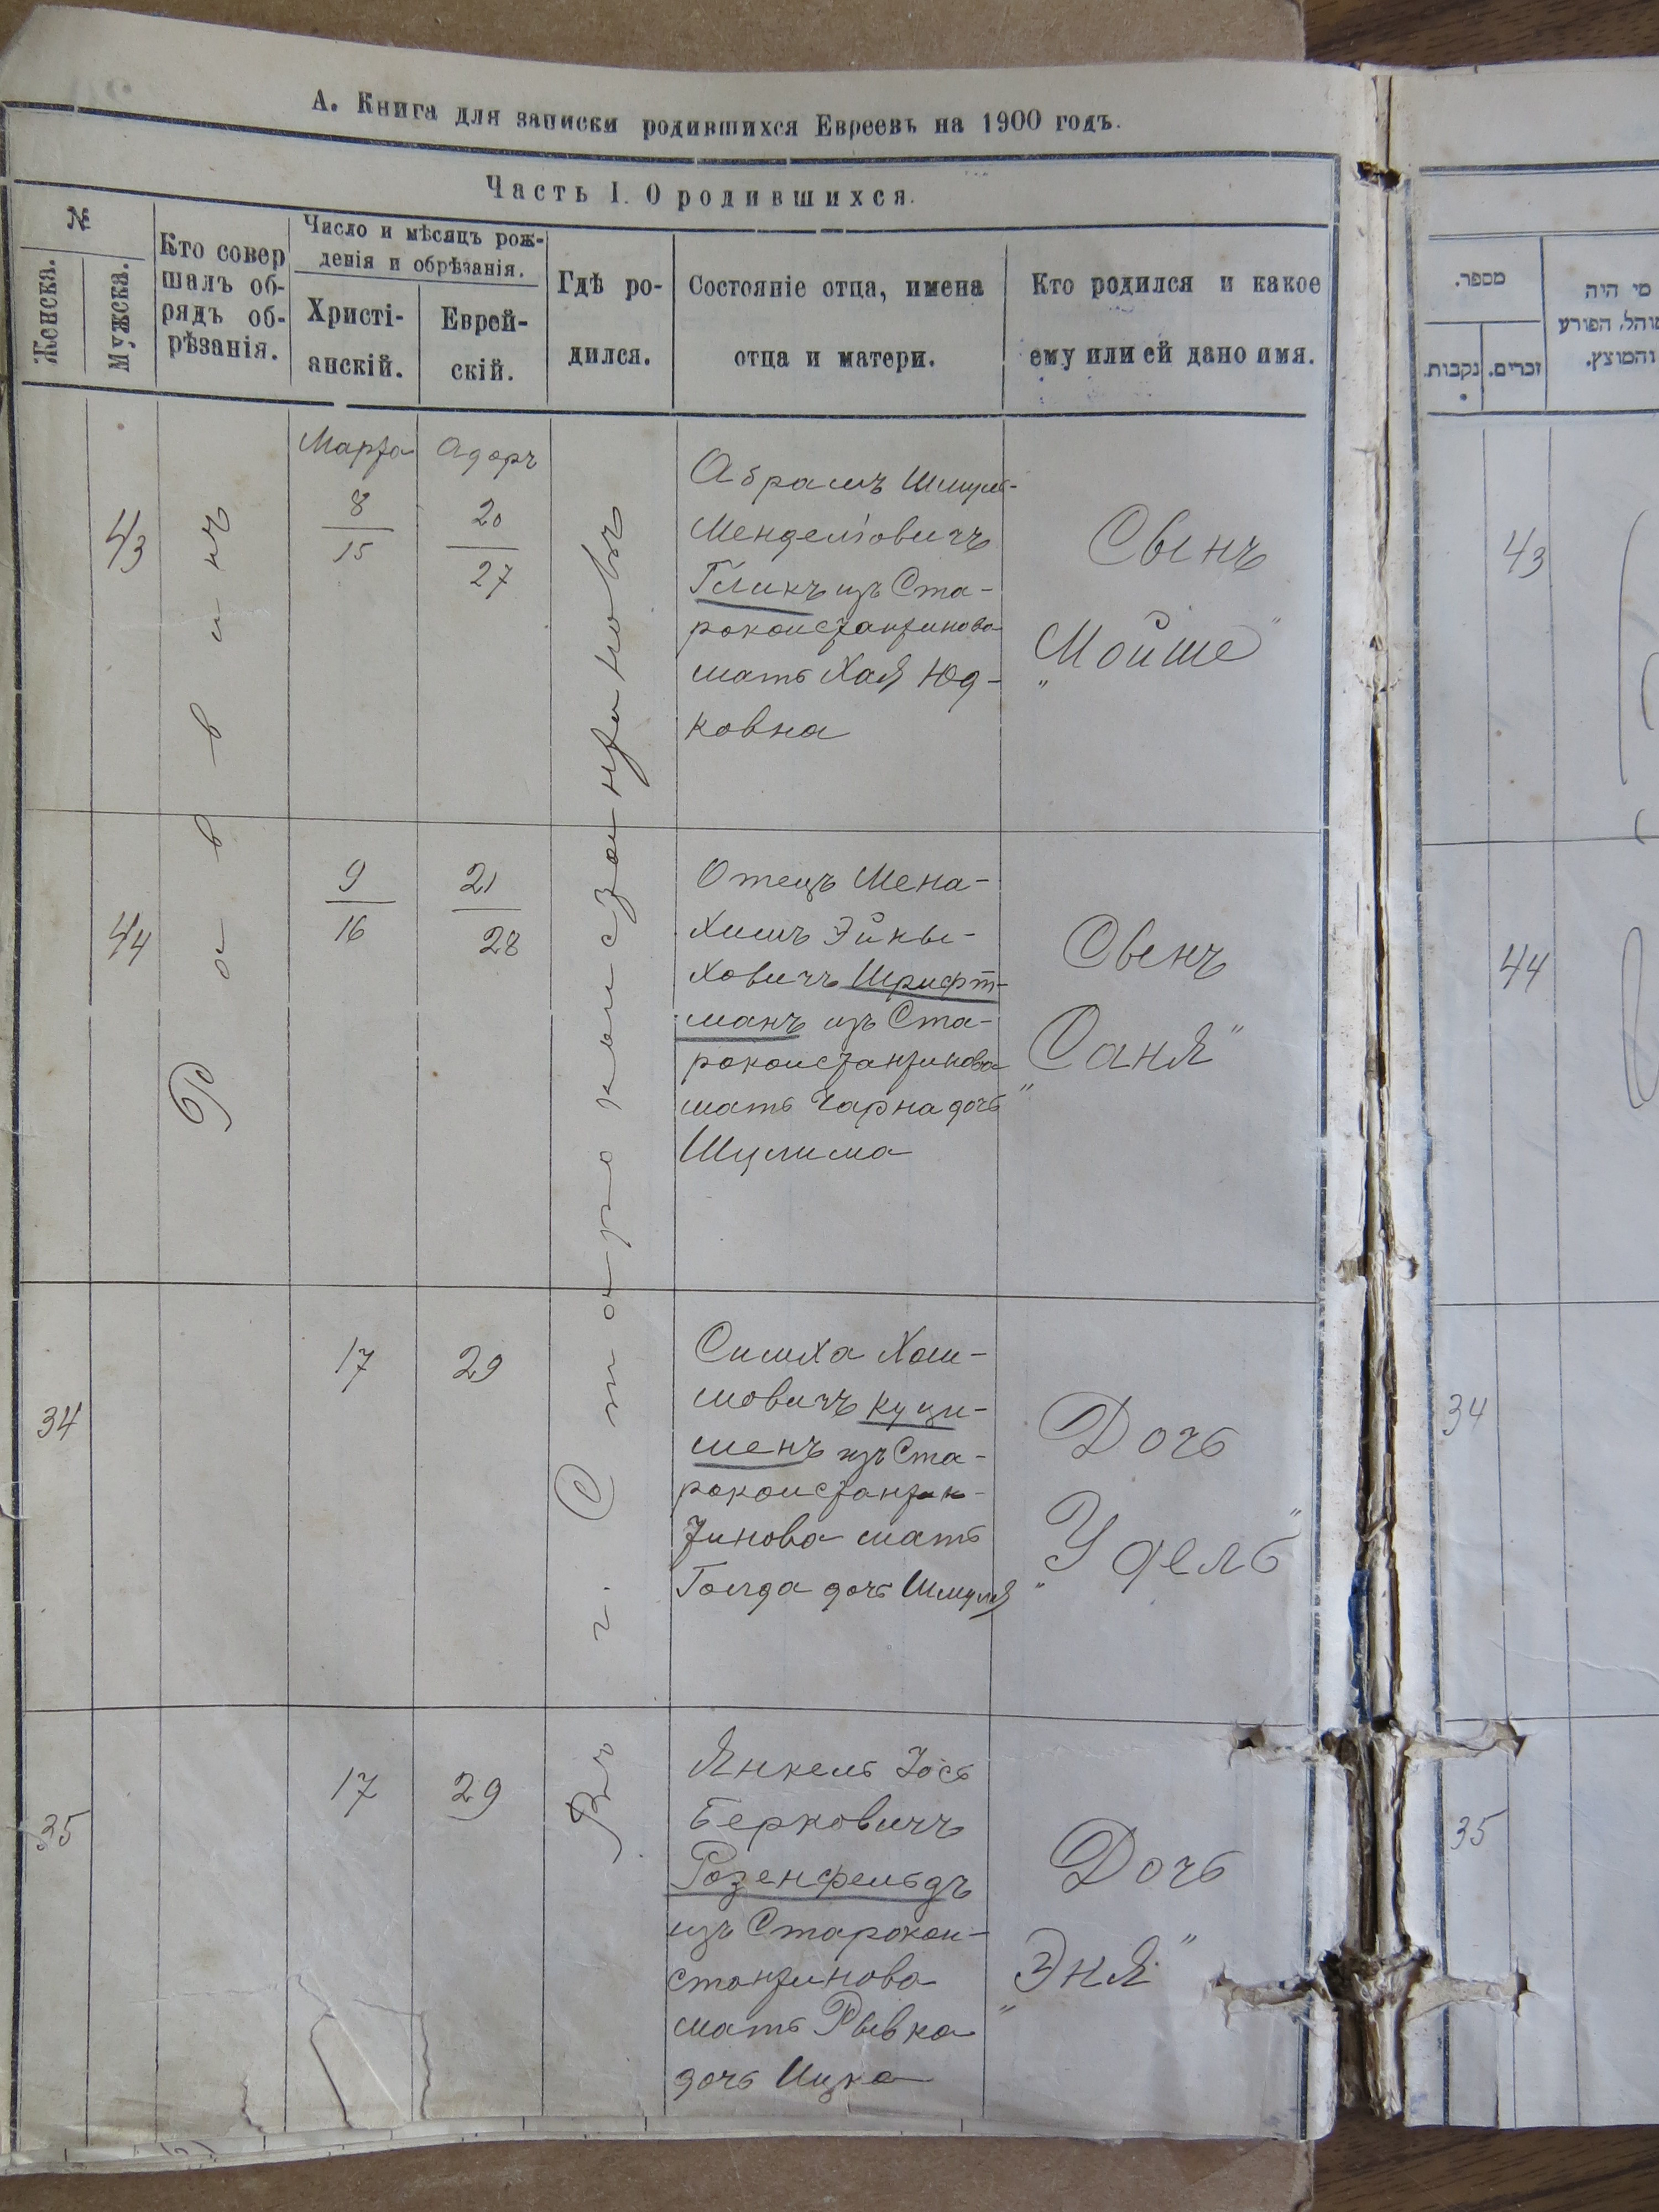 А. Книга для записки родившихся Евреевъ на 1900 годъ.
Часть I. О родившихся.
№
Женска.
Мужска.
Кто совер
шалъ об-
рядъ об-
рѣзанія.
Число и мѣсяцъ рож-
денія и обрѣзанія.
Христі-
анскій.
Еврей-
скій.
Гдѣ ро-
дился.
Состояніе отца, имена
отца и матери.
Кто родился и какое
ему или ей дано имя.
Раввинъ
Въ г. Староконстантиновъ
43
Марта
8
15
Адаръ
20
27
Абрамъ Шмуль-
Менделіовичъ
Гликъ изъ Ста-
роконстантинова
мать Хая Юд-
ковна
Сынъ
„Мойше“
44
9
16
21
28
Отецъ Мена-
химъ Эйны-
ховичъ Шрифт-
манъ изъ Ста-
роконстантинова
мать Чарна дочь
Шулима
Сынъ
„Саня“
34
17
29
Симха Хаи-
мовичъ куци-
менъ изъ Ста-
роконстантин-
тинова мать
Голда дочь Шмуля
Дочь
„Удель“
35
17
29
Янкель Іось
Берковичъ
Розенфельдъ
изъ Старокон-
стантинова
мать Рывка
дочь Ицка
Дочь
„Эня“
מספר.
נקבות.
זכרים.
מי היה
מוהל, הפורע
והמוצץ.
43
44
34
35